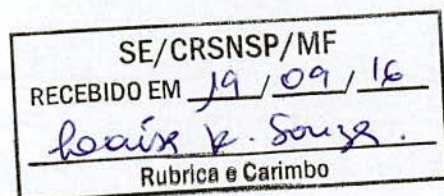 SE/CRSNSP/MF
RECEBIDO EM 19/09/16
Souza.
Rubrica e Carimbo